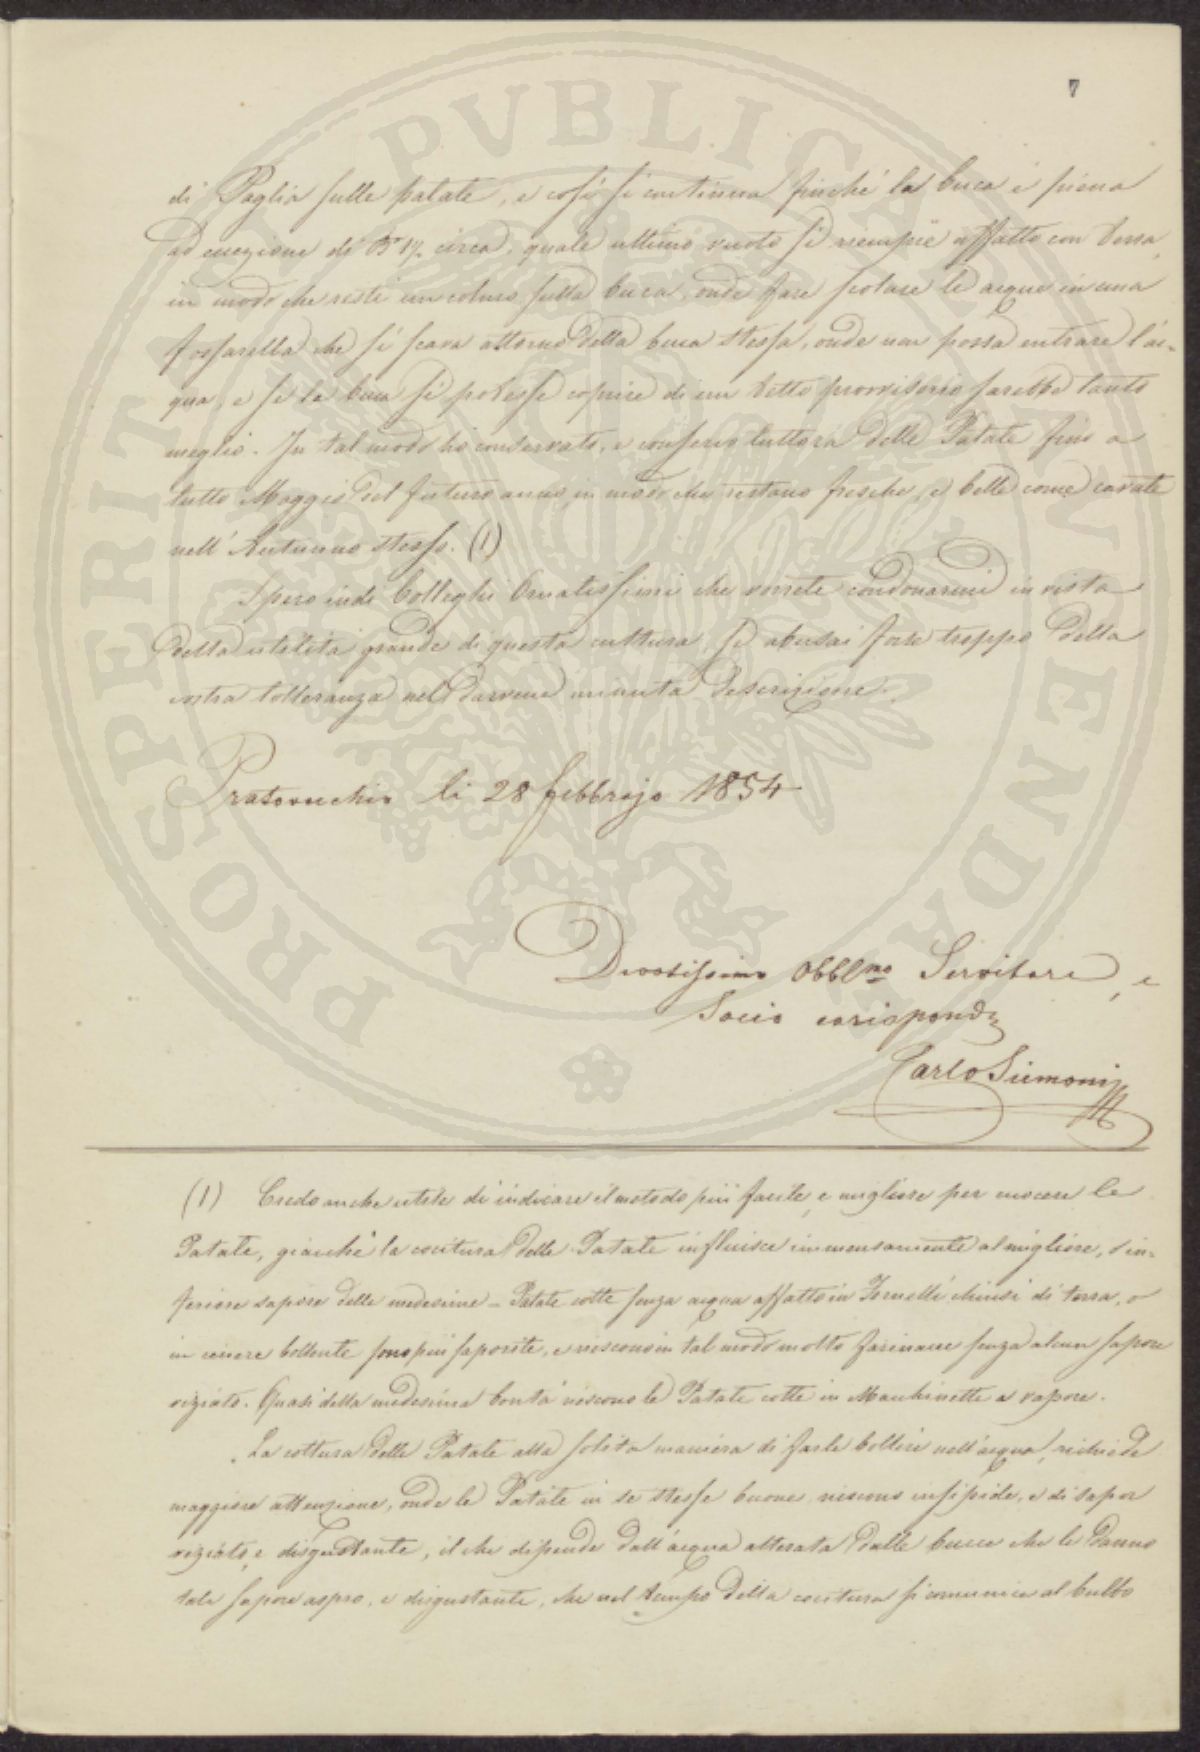 7
di Paglia sulle patate, e così si continua finchè la buca è piena
ad eccezione di B.ª ½ circa, quale ultimo vuoto si riempie affatto con terra,
in modo che resti un colmo sulla buca, onde fare scolare le acque in una
fossarella che si scava attorno della buca stessa, onde non possa entrare l'ac-
qua, e se la buca si potesse coprire di un tetto provvisorio sarebbe tanto
meglio. In tal modo ho conservato, e conservo tuttora delle Patate fino a
tutto Maggio del futuro anno, in modo che restano fresche, e belle come cavate
nell'Autunno stesso. (1)
Spero indi Colleghi Ornatissimi che vorrete condonarmi in vista
della utilità grande di questa cultura, se abusai forse troppo della
vostra tolleranza nel darvene minuta descrizione.
Pratovecchio li 28 febbrajo 1854
Devotissimo Obblmo Servitore, e
Socio corispond.
Carlo Siemoni
(1) Credo anche utile di indicare il metodo più facile, e migliore per cuocere le
Patate, giacchè la cocitura delle Patate influisce immensamente al migliore, o in-
feriore sapore delle medesime - Patate cotte senza acqua affatto in Fornelli chiusi di terra, o
in cenere bollente sono più saporite, e riescono in tal modo molto farinacee senza alcun sapore
viziato. Quasi della medesima bontà riescono le Patate cotte in Macchinette a vapore.
La cottura delle Patate alla solita maniera di farle bollire nell'acqua, richiede
maggiore attenzione, onde le Patate in se stesse buone, riescono insipide, e di sapor
viziato, e disgustante, il che dipende dall'acqua alterata dalle bucce che le danno
tale sapore aspro, e disgustante, che nel tempo della cocitura si comunica al bulbo
PROSPERITATI PVBLICAE AVGENDAE